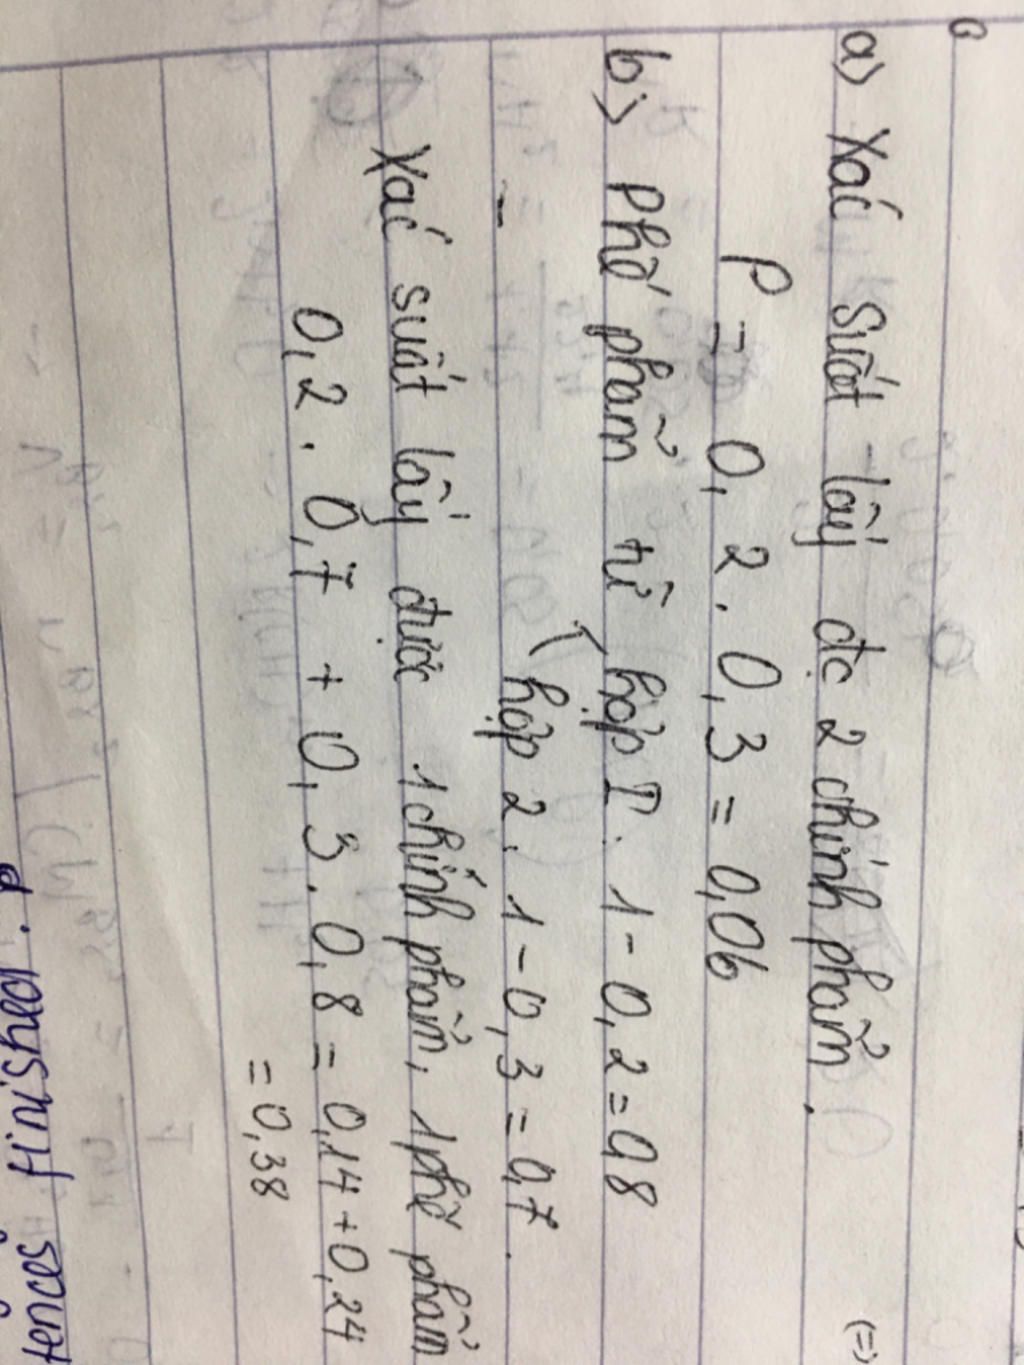 a) Xác suất lấy đc 2 chính phẩm.
P = 0,2 . 0,3 = 0,06
b) Phế phẩm từ hộp I. 1 - 0,2 = 0,8
hộp 2. 1 - 0,3 = 0,7.
Xác suất lấy được 1 chính phẩm, 1 phế phẩm
0,2 . 0,7 + 0,3 . 0,8 = 0,14 + 0,24
= 0,38
tences finished. p